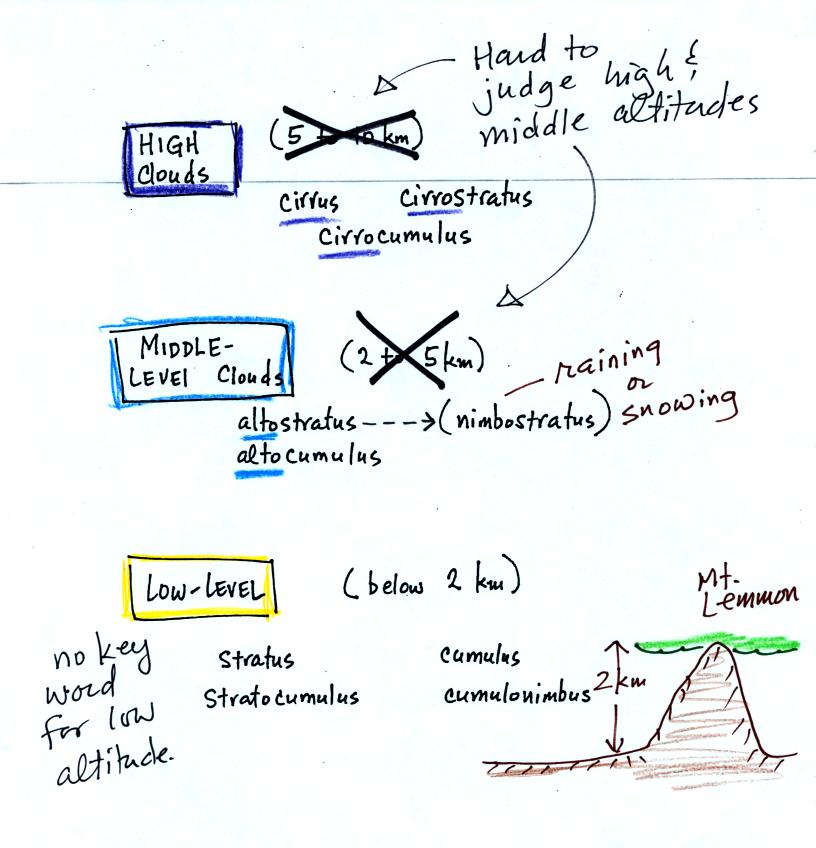 Hard to
judge high &
middle altitudes
HIGH
Clouds
(5 to 10 km)
cirrus cirrostratus
cirrocumulus
MIDDLE-
LEVEL Clouds
(2 to 5 km)
raining
or
snowing
altostratus ----> (nimbostratus)
altocumulus
LOW-LEVEL (below 2 km)
Mt.
Lemmon
no key
word
for low
altitude.
Stratus cumulus
Stratocumulus cumulonimbus
2 km